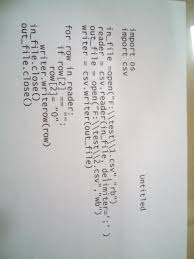 Untitled
import os
import csv
in_file =open("F:\\test\\1.csv","rb")
reader = csv.reader(in_file, delimiter=';')
out_file = open("F:\\test\\2.csv","wb")
writer = csv.writer(out_file)
for row in reader:
if row[2] == "":
row[2]= "0"
writer.writerow(row)
in_file.close()
out_file.close()